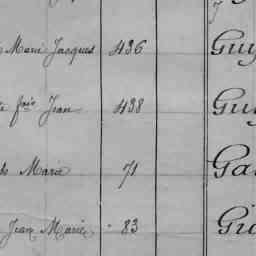 Marie Jacques 436 Guy
fois Jean 438 Gu
Marie 71 Ga
Jean Marie 83 Gi